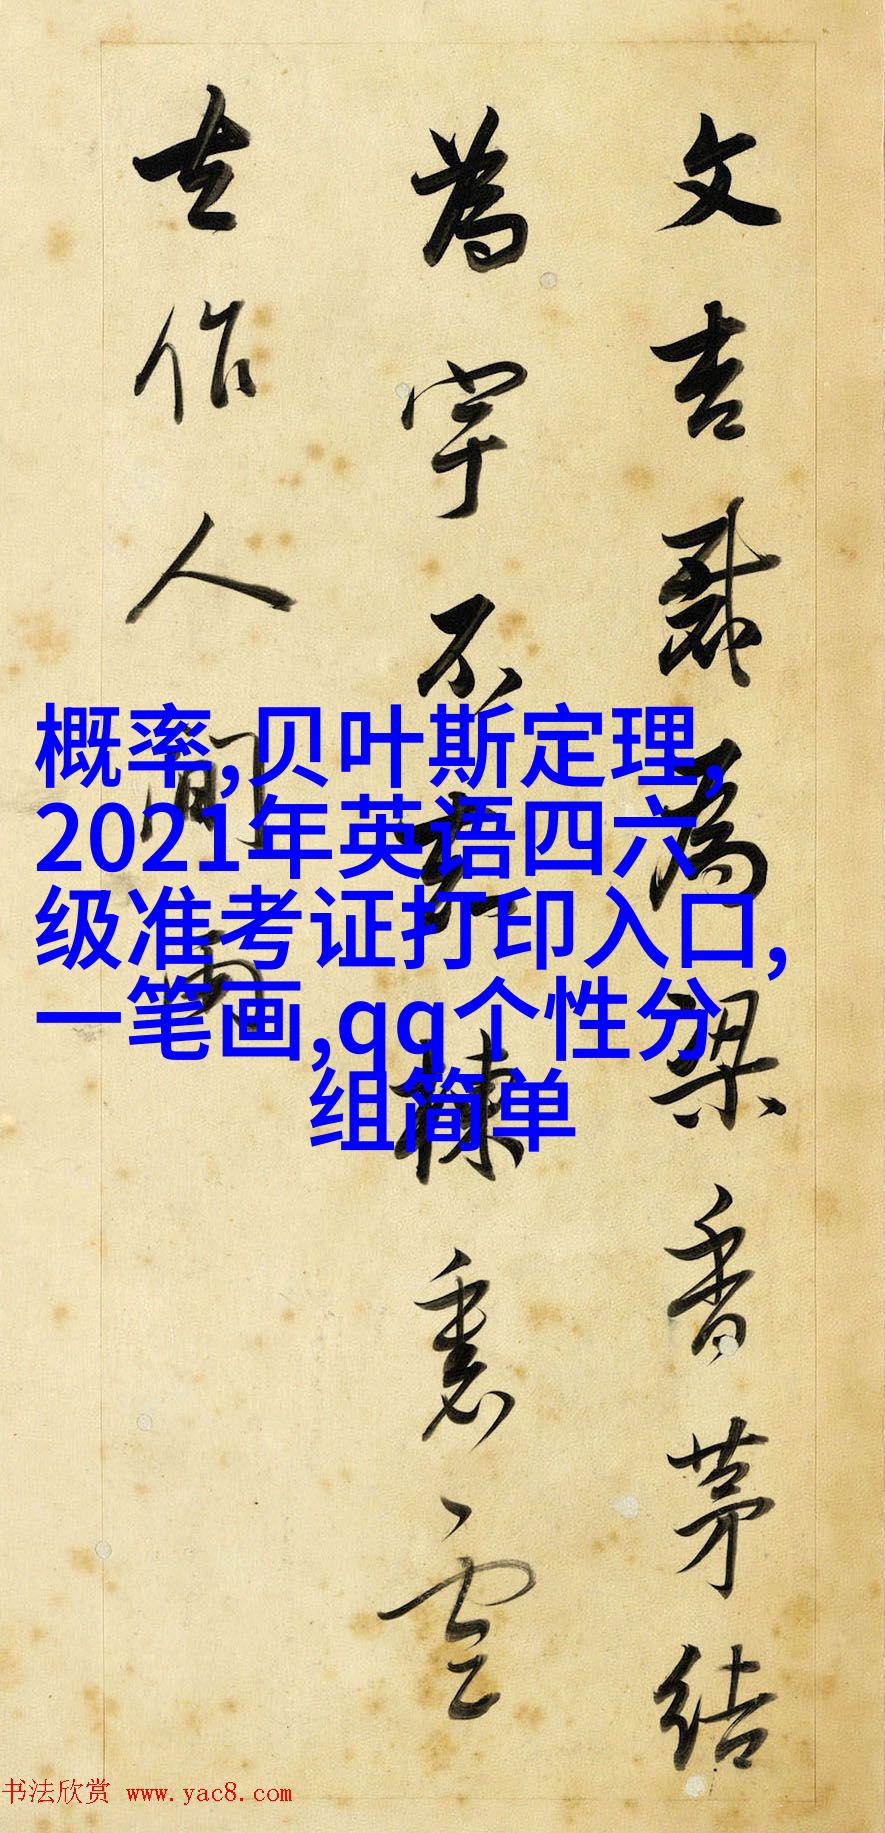 文杏裁為梁香茅結
為宇不知棟裏雲
去作人間雨
概率,贝叶斯定理,
2021年英语四六
级准考证打印入口,
一笔画,qq个性分
组简单
书法欣赏 www.yac8.com